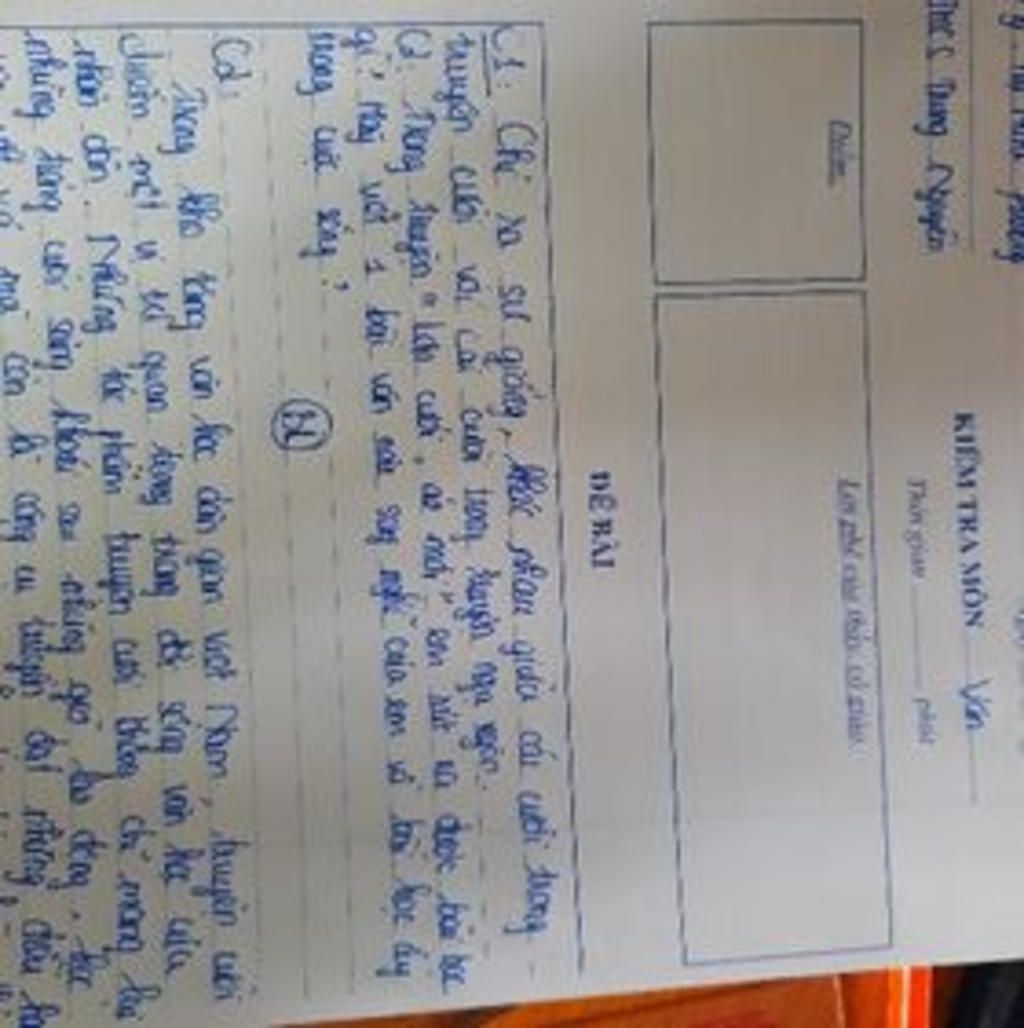 THCS Trung Nguyên
KIỂM TRA MÔN Văn
Thời gian phút
Điểm
Lời phê của thầy, cô giáo
ĐỀ BÀI
C1: Chỉ ra sự giống, khác nhau giữa cái cười trong
truyện cười và cái cười trong truyện ngụ ngôn.
C2: Trong truyện "Lợn cưới, áo mới" em rút ra được bài học
gì? Hãy viết 1 bài văn nêu suy nghĩ của em về bài học ấy
trong cuộc sống?
BL
C2:
Trong kho tàng văn học dân gian Việt Nam, truyện cười
chiếm một vị trí quan trọng trong đời sống văn học của
nhân dân. Những tác phẩm truyện cười không chỉ mang lại
những tiếng cười sảng khoái sau những giờ lao động,
còn là công cụ truyền đạt những